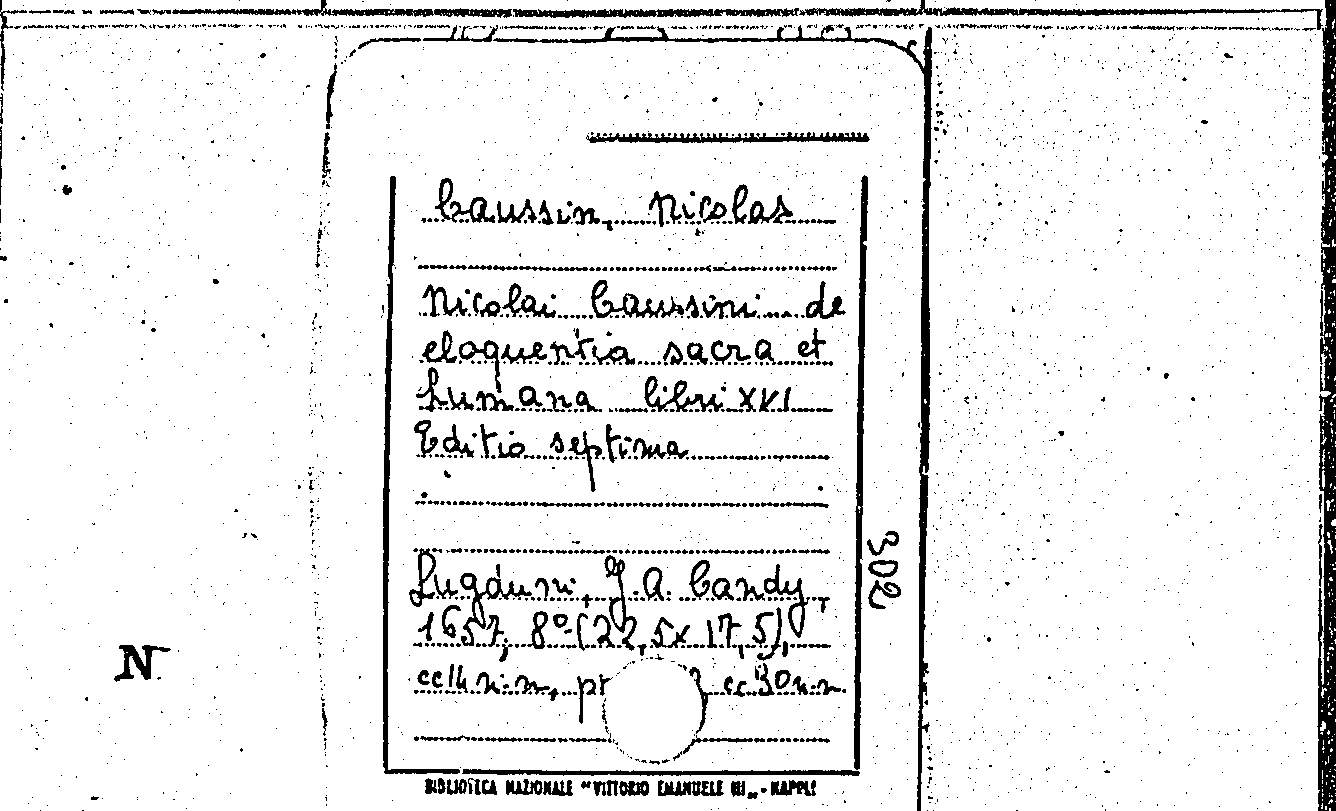 Caussin, Nicolas
Nicolai Caussini... de
eloquentia sacra et
humana libri XVI
Editio septima
302
Lugduni, J.A. Candy,
1657, 8º (22,5x17,5),
cc n.n., cc 30 n.n.
N
BIBLIOTECA NAZIONALE "VITTORIO EMANUELE III„ - NAPOLI